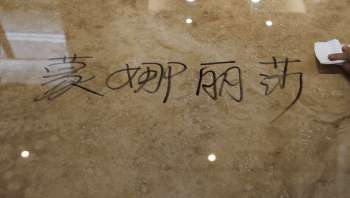 蒙娜丽莎